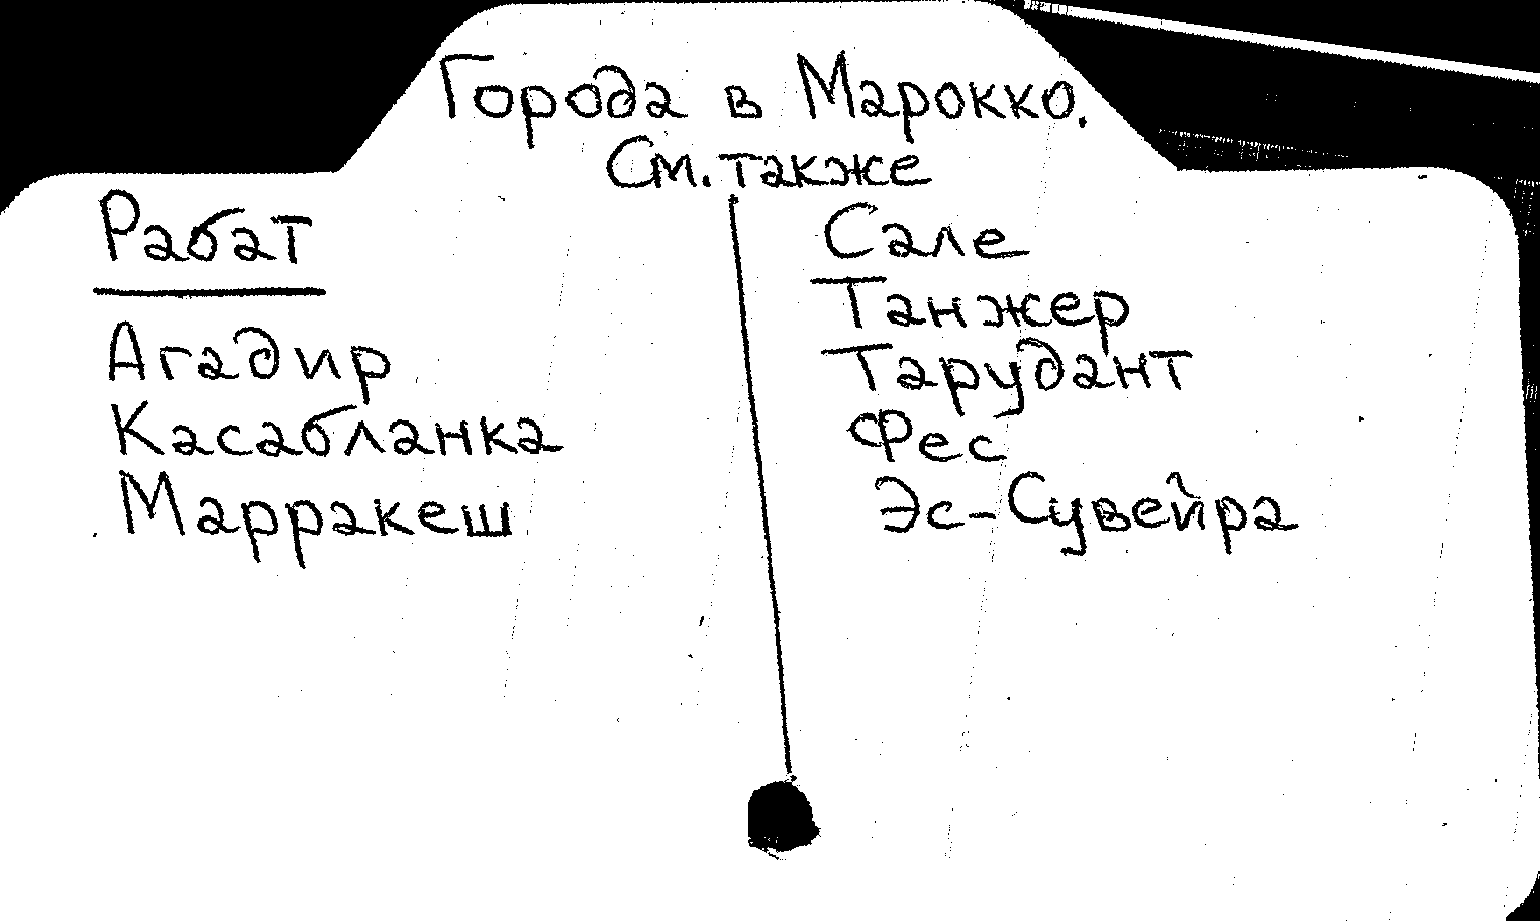 Города в Марокко.
См. также
Рабат
Агадир
Касабланка
Марракеш
Сале
Танжер
Тарудант
Фес
Эс-Сувейра